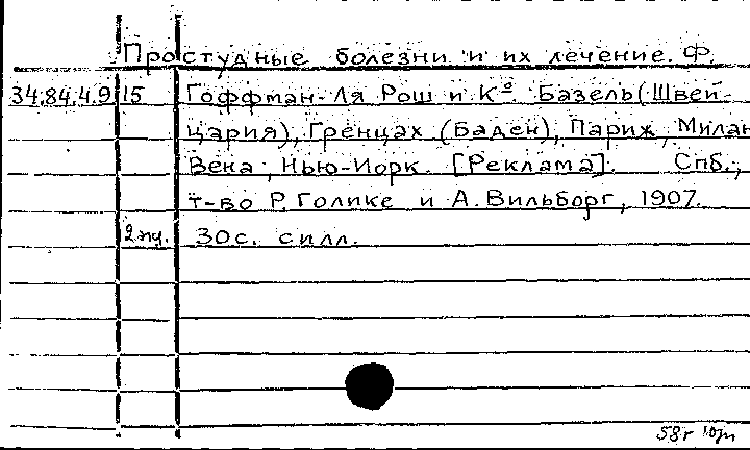 Простудные болезни и их лечение. Ф.
34.84.4.9 15 Гоффман-Ля Рош и Кº Базель (Швей-
цария), Гренцах (Баден), Париж, Милан
Вена, Нью-Иорк. [Реклама]. Спб.,
т-во Р. Голике и А. Вильборг, 1907.
2 экз. 30с. силл.
58г